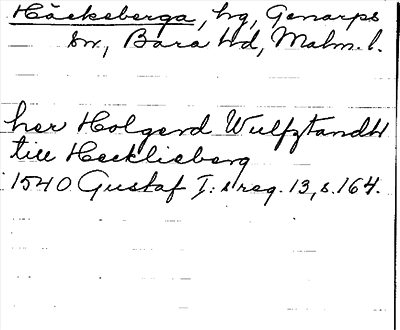 Häckeberga, hg, Genarps
sn, Bara hd, Malm. l.
her Holgerd Wulfztandh
till Hecklieberg
1540 Gustaf I: s reg. 13, s. 164.